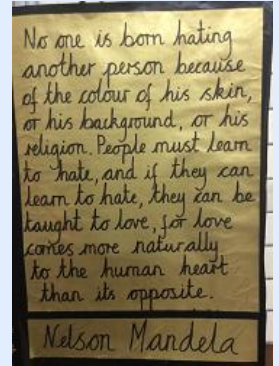 No one is born hating
another person because
of the colour of his skin,
or his background, or his
religion. People must learn
to hate, and if they can
learn to hate, they can be
taught to love, for love
comes more naturally
to the human heart
than its opposite.
Nelson Mandela